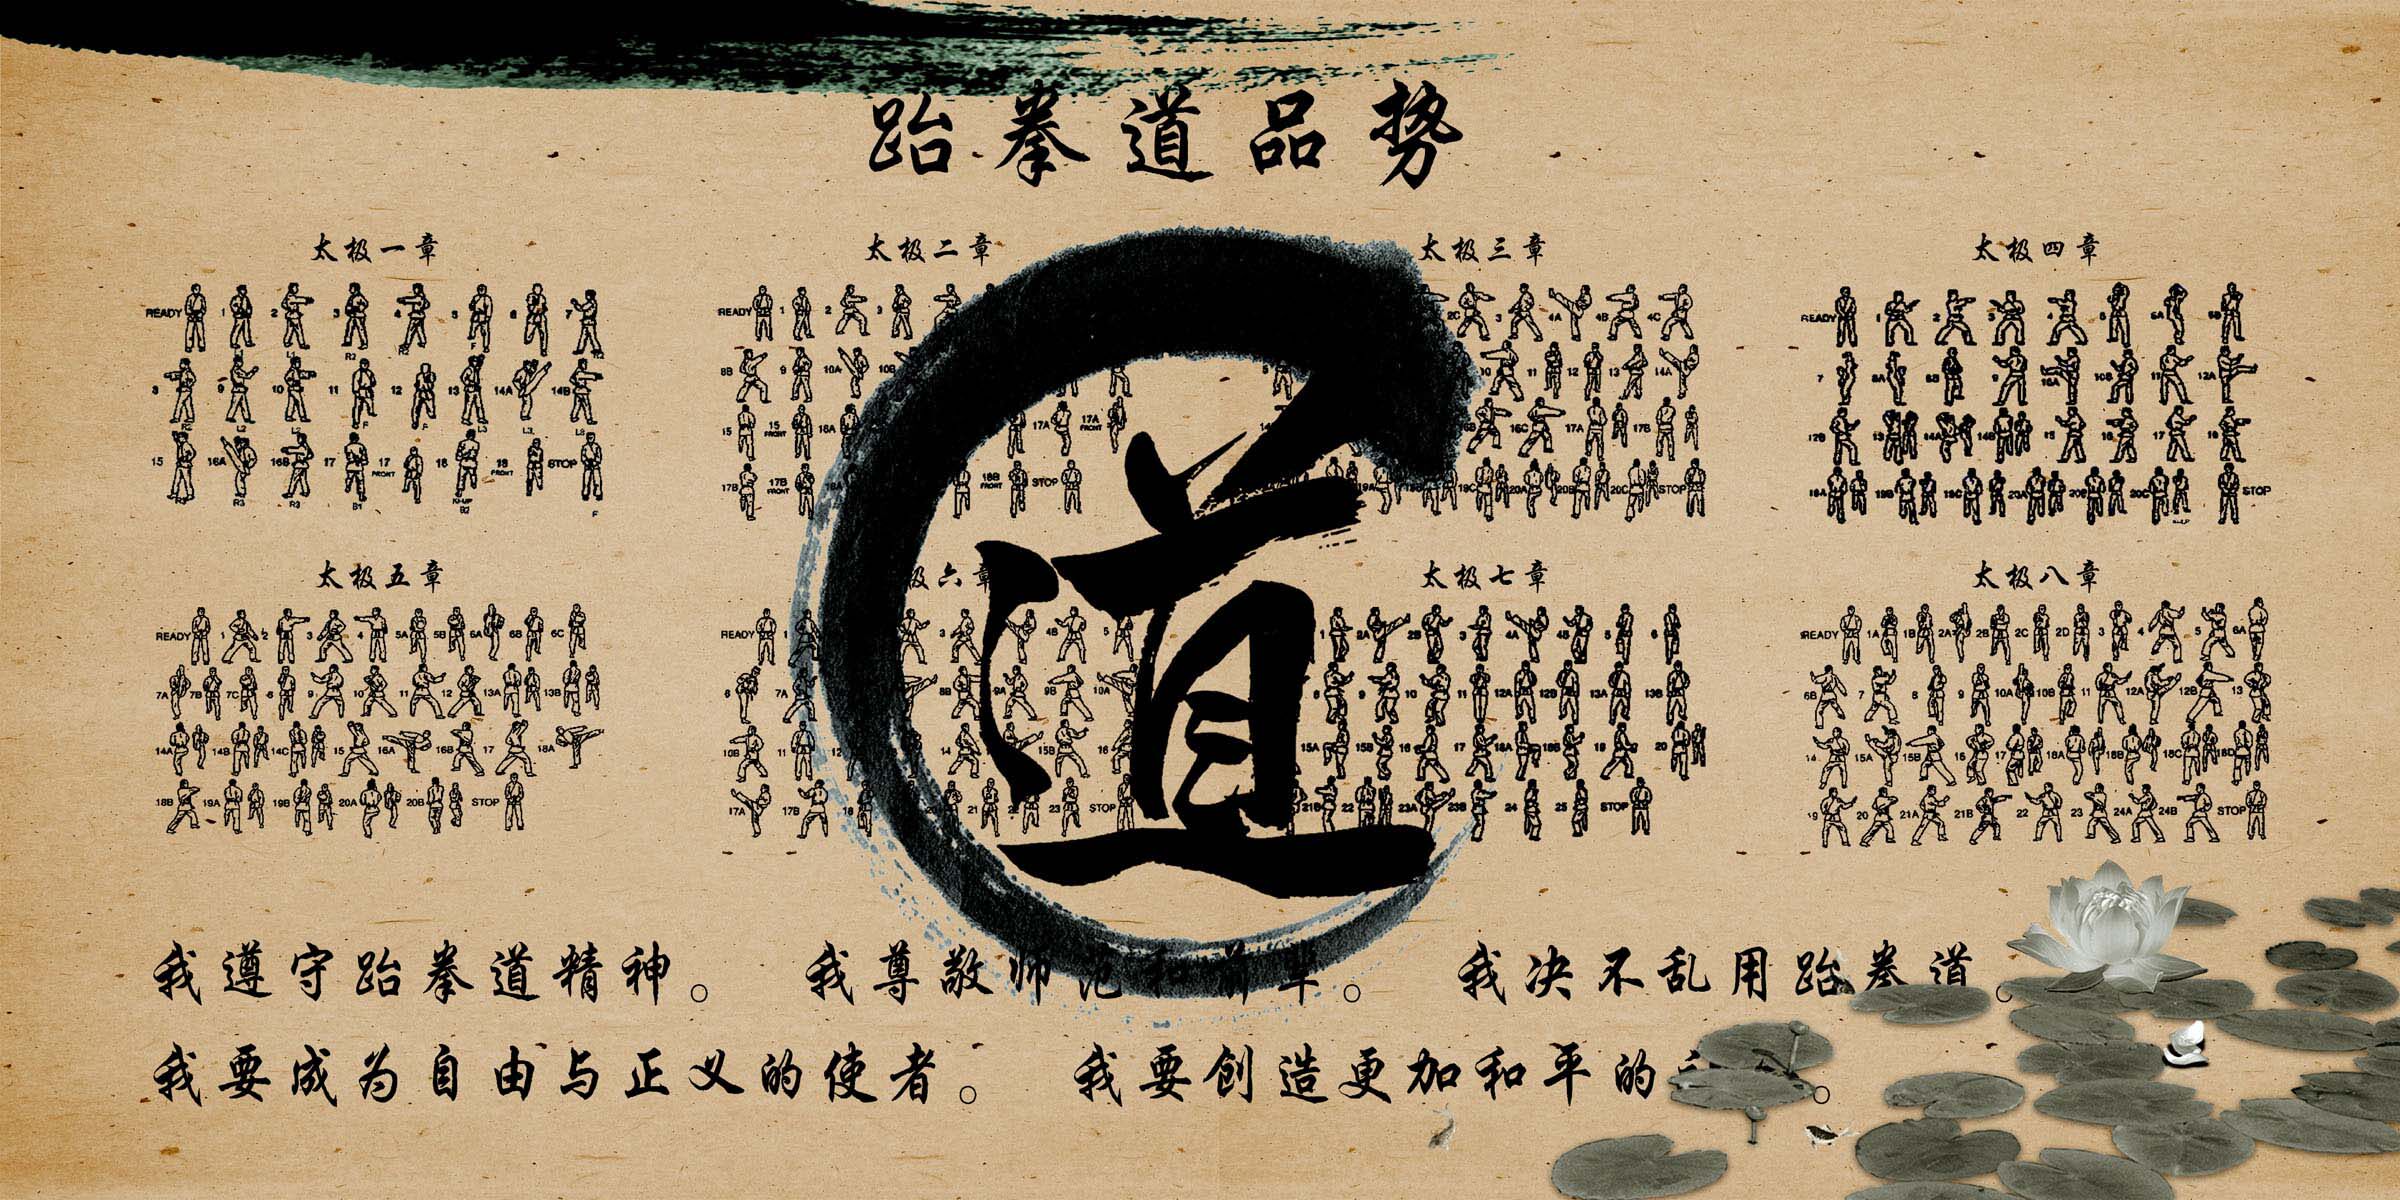 跆拳道品势
太极一章 太极二章 太极三章 太极四章
READY 1 2 3 4 5 6 7
9 10 11 12 13 14A 14B
15 16A 16B 17 17 FRONT 18 18 FRONT STOP
READY 1 2 3
8B 9 10A 10B
15 15 FRONT 16A 17A 17A FRONT
17B 17B FRONT 18A 18B FRONT STOP
2C 3 4A 4B 4C
10 11 12 13 14A
16C 17A 17B
19C 20A 20B 20C STOP
READY 1 2 3 4 5 6A 6B
7 8A 8B 9 10A 10B 11 12A
12B 13 14A 14B 15 16 17 18
19A 19B 19C 20A 20B 20C STOP
道
太极五章 极六章 太极七章 太极八章
READY 1 2 3 4 5A 5B 6A 6B 6C
7A 7B 7C 8 9 10 11 12 13A 13B
14A 14B 14C 15 16A 16B 17 18A
18B 19A 19B 20A 20B STOP
READY 1 3 4B 5
6 7A 8B 9A 9B 10A
10B 11 14 15B 16
17A 17B 18 20 21 22 23 STOP
1 2A 2B 3 4A 4B 5 6
8 9 10 11 12A 12B 13A 13B
15A 15B 16 17 18A 18B 19 20
21B 22 23A 23B 24 25 STOP
READY 1A 1B 2A 2B 2C 2D 3 4 5 6A
6B 7 8 9 10A 10B 11 12A 12B 13
14 15A 15B 16 17 18A 18B 18C 18D
19 20 21A 21B 22 23 24A 24B STOP
我遵守跆拳道精神。 我尊敬师范和前辈。 我决不乱用跆拳道。
我要成为自由与正义的使者。 我要创造更加和平的 。